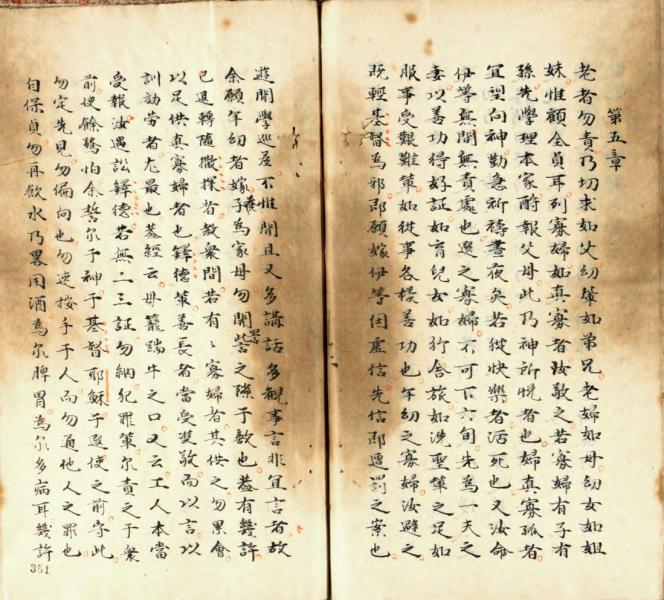 第五章
老者勿責乃切求如父幼輩如弟兄老婦如母幼女如姐
妹惟顧全貞耳列寡婦如真寡者汝敬之若寡婦有子有
孫先學理本家酧報父母此乃神所悅者也婦真寡孤者
宜望向神勤急祈禱晝夜矣若從快樂者活死也又汝命
伊等無間無責處也選之寡婦不可下六旬先為一夫之
妻以善功得好証如育兒女如行舍旅如洗聖輩之足如
服事受艱難輩如從事各樣善功也年幼之寡婦汝避之
既輕基督為邪即願嫁伊等因虛信先信即遭罰之案也
遊閒學巡屋不惟閒且又多講話多觀事言非宜言者故
余願年幼者嫁子養為家母勿開訾詈之隙于敵也葢有幾許
已退轉隨撒擇者教衆間若有寡婦者其供之勿累會
以足供真寡婦者也鐸德輩善長者當受雙敬而以言以
訓勞者尤最也葢經云毋籠踹牛之口又云工人本當
受報汝遇訟鐸德若無二三証勿納犯罪輩尔責之于衆
前使餘驚怕余誓尔于神于基督耶穌于選使之前守此
勿定先見勿偏向也勿速按手于人而勿通他人之罪也
自保貞勿再飲水乃畧用酒為尔脾胃為尔多病耳幾許
351